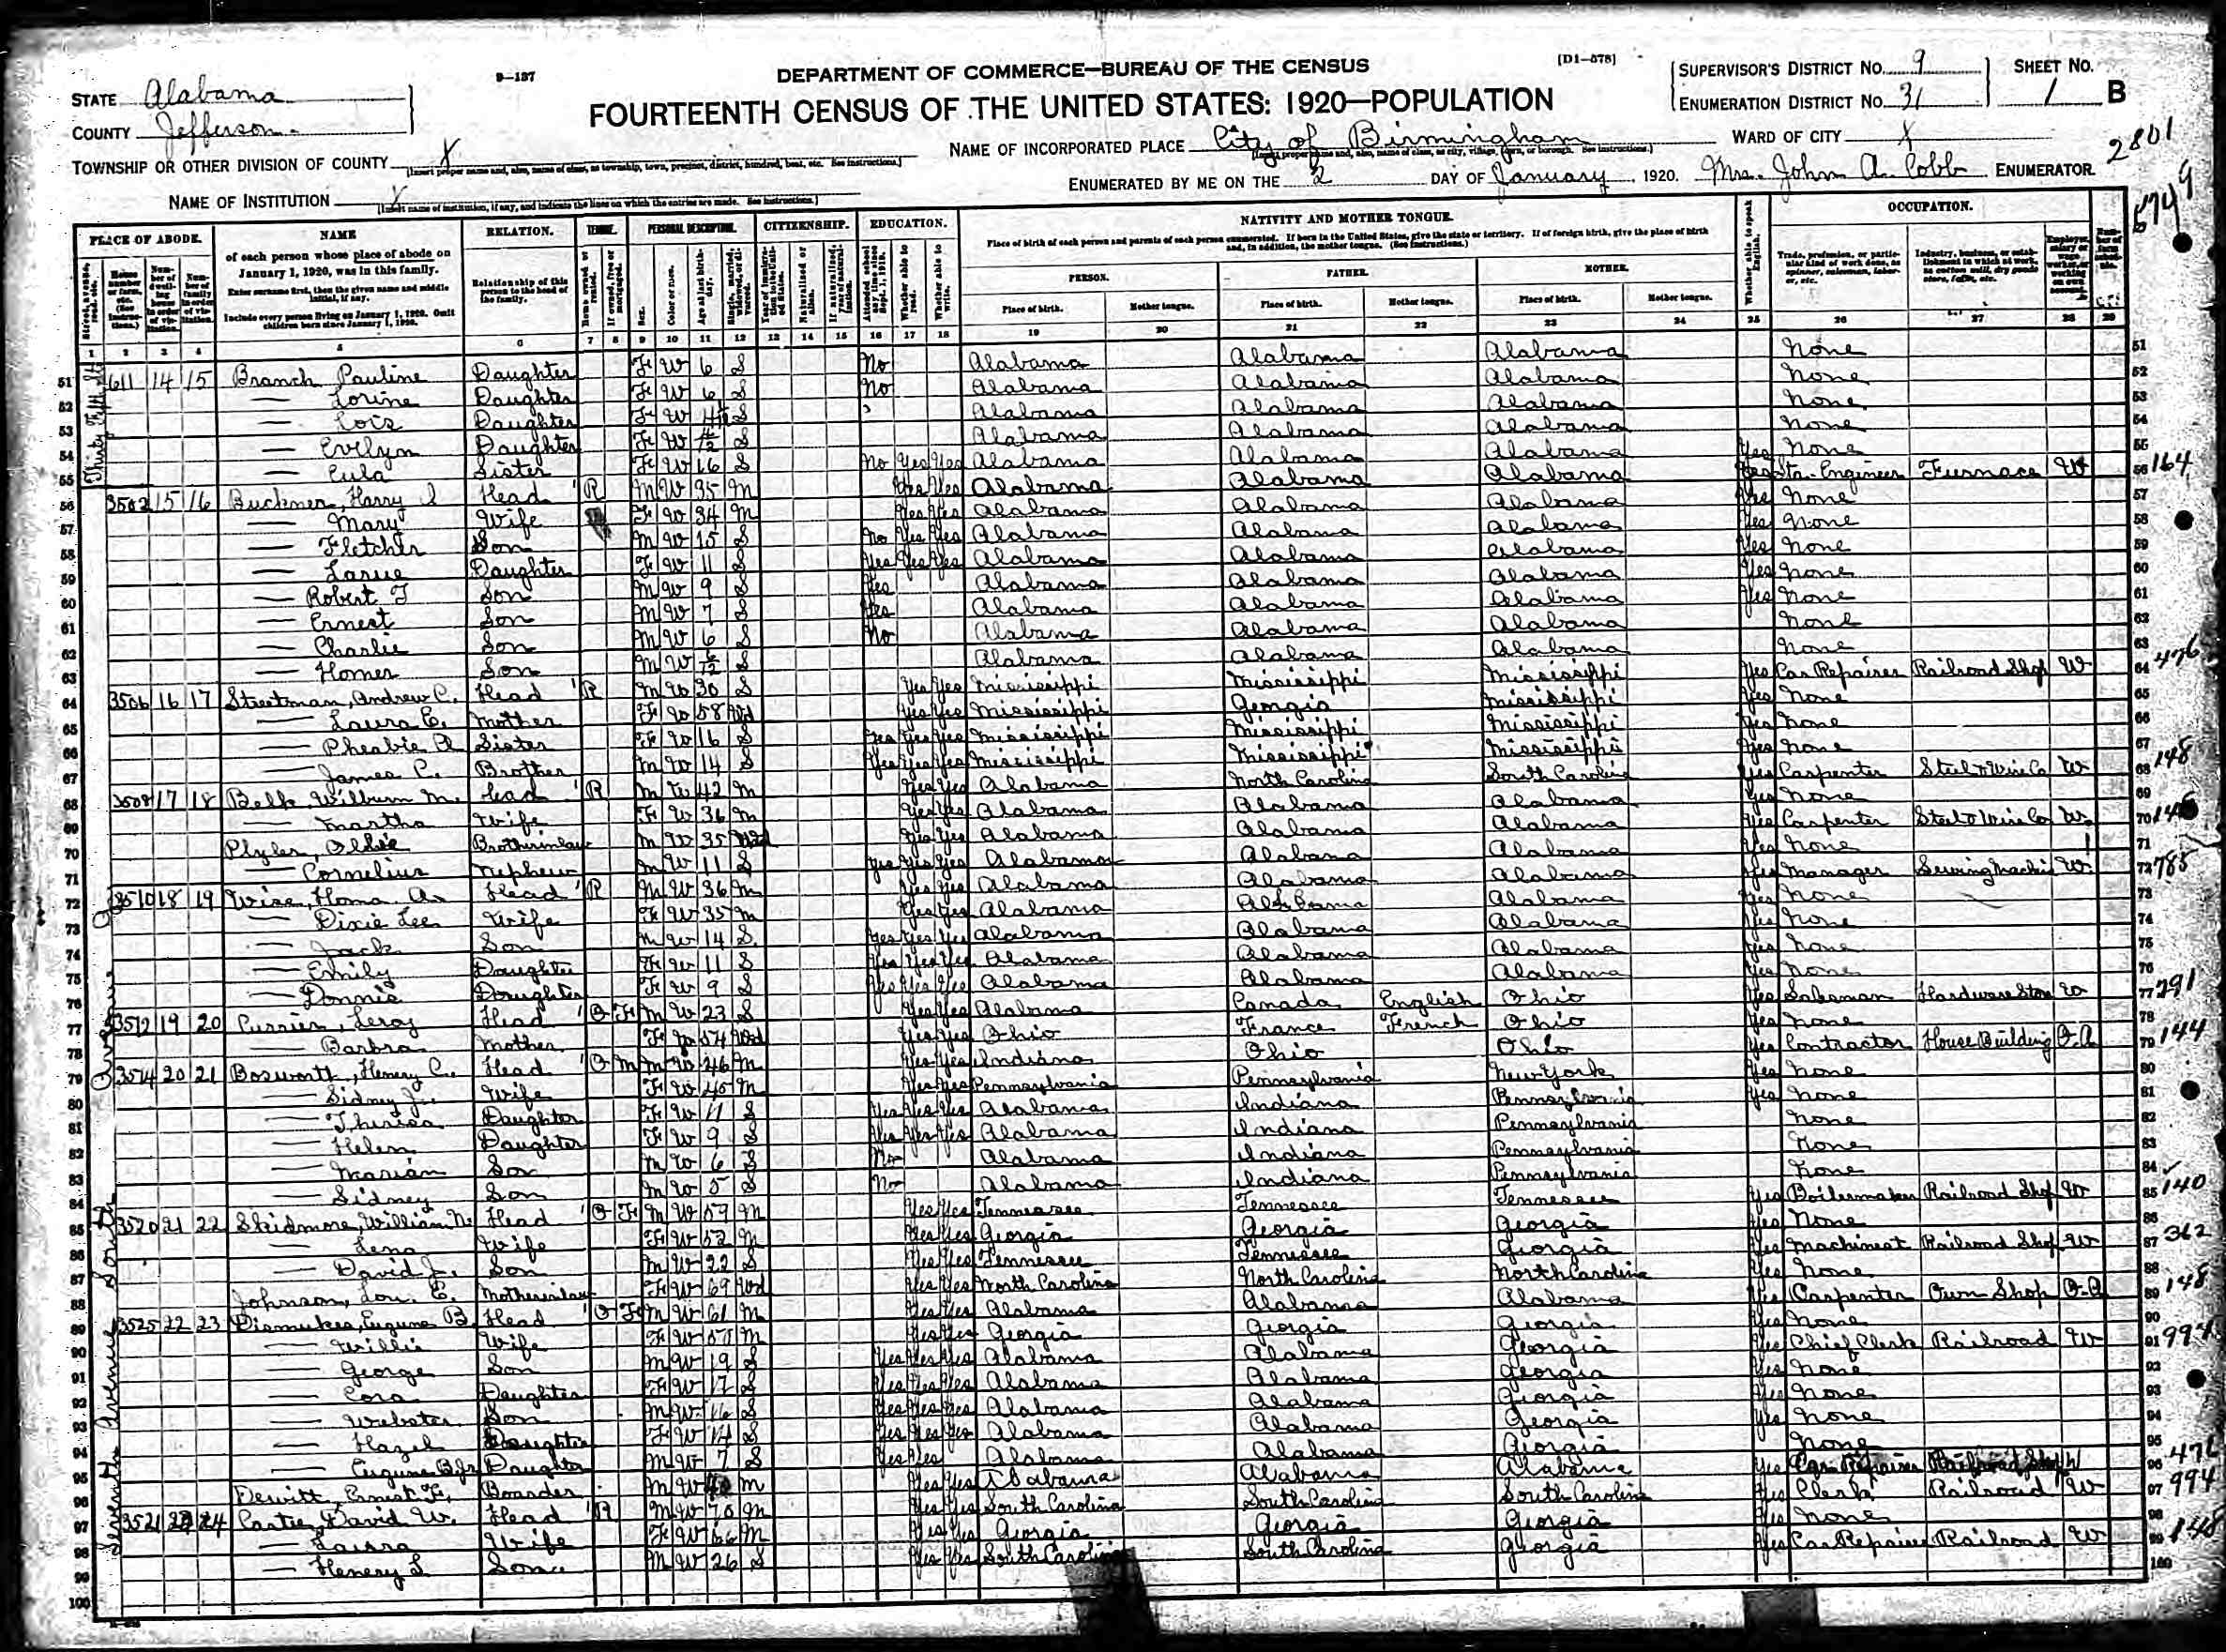 9—137
DEPARTMENT OF COMMERCE—BUREAU OF THE CENSUS
[D1—578]
FOURTEENTH CENSUS OF THE UNITED STATES: 1920—POPULATION
SUPERVISOR'S DISTRICT NO. 9
ENUMERATION DISTRICT NO. 31
SHEET NO.
1 B
STATE Alabama
COUNTY Jefferson
TOWNSHIP OR OTHER DIVISION OF COUNTY X
NAME OF INSTITUTION X
NAME OF INCORPORATED PLACE City of Birmingham
WARD OF CITY X
ENUMERATED BY ME ON THE 2 DAY OF January, 1920. Mrs. John A. Cobb ENUMERATOR.
2801
PLACE OF ABODE. NAME RELATION. TENURE. PERSONAL DESCRIPTION. CITIZENSHIP. EDUCATION. NATIVITY AND MOTHER TONGUE. OCCUPATION.
of each person whose place of abode on January 1, 1920, was in this family.
Enter surname first, then the given name and middle initial, if any.
Include every person living on January 1, 1920. Omit children born since January 1, 1920.
Relationship of this person to the head of the family.
Place of birth of each person and parents of each person enumerated. If born in the United States, give the state or territory. If of foreign birth, give the place of birth and, in addition, the mother tongue. (See instructions.)
PERSON. FATHER. MOTHER.
Place of birth. Mother tongue. Place of birth. Mother tongue. Place of birth. Mother tongue.
1 2 3 4 5 6 7 8 9 10 11 12 13 14 15 16 17 18 19 20 21 22 23 24 25 26 27 28 29
Thirty Fifth St
51 611 14 15 Branch Pauline Daughter F W 6 S No Alabama Alabama Alabama None
52 — Lorine Daughter F W 6 S No Alabama Alabama Alabama None
53 — Lois Daughter F W S Alabama Alabama Alabama None
54 — Evelyn Daughter F W S Alabama Alabama Alabama None
55 — Eula Sister F W 16 S No Yes Yes Alabama Alabama Alabama Yes None
56 3502 15 16 Buckner, Harry Head R M W 35 M Yes Yes Alabama Alabama Alabama Yes Sta. Engineer Furnace W 164
57 — Mary Wife F W 34 M Yes Yes Alabama Alabama Alabama Yes None
58 — Fletcher Son M W 15 S No Yes Yes Alabama Alabama Alabama Yes None
59 — Larue Daughter F W 11 S Yes Yes Yes Alabama Alabama Alabama Yes None
60 — Robert Son M W 9 S Yes Alabama Alabama Alabama Yes None
61 — Ernest Son M W 7 S Yes Alabama Alabama Alabama Yes None
62 — Charlie Son M W 6 S No Alabama Alabama Alabama None
63 — Homer Son M W S Alabama Alabama Alabama None
64 3506 16 17 Streetman, Andrew C. Head R M W 30 S Yes Yes Mississippi Mississippi Mississippi Yes Car Repairer Railroad Shop W 476
65 — Laura E. Mother F W 58 Wd Yes Yes Mississippi Georgia Mississippi Yes None
66 — Pheabie Sister F W 16 S Yes Yes Yes Mississippi Mississippi Mississippi Yes None
67 — James C. Brother M W 14 S Yes Yes Yes Mississippi Mississippi Mississippi Yes None
68 3508 17 18 Belk Wilburn M. Head R M W 42 M Yes Yes Alabama North Carolina South Carolina Yes Carpenter Steel & Wire Co W 148
69 — Martha Wife F W 36 M Yes Yes Alabama Alabama Alabama Yes None
70 Plyler, Ollie Brotherinlaw M W 35 Yes Yes Alabama Alabama Alabama Yes Carpenter Steel & Wire Co W
71 — Cornelius Nephew M W 11 S Yes Yes Yes Alabama Alabama Alabama Yes None
72 3510 18 19 Wise, Homa A. Head R M W 36 M Yes Yes Alabama Alabama Alabama Yes Manager Sewing Machine W 785
73 — Dixie Lee Wife F W 35 M Yes Yes Alabama Alabama Alabama Yes None
74 — Jack Son M W 14 S Yes Yes Yes Alabama Alabama Alabama Yes None
75 — Emily Daughter F W 11 S Yes Yes Yes Alabama Alabama Alabama Yes None
76 — Donnie Daughter F W 9 S Yes Yes Yes Alabama Alabama Alabama Yes None
77 3512 19 20 Currier, Leroy Head O F M W 23 S Yes Yes Alabama Canada English Ohio Yes Salesman Hardware Store W 291
78 — Barbra Mother F W 54 Wd Yes Yes Ohio France French Ohio Yes None
79 3514 20 21 Bosworth, Henery C. Head O M M W 46 M Yes Yes Indiana Ohio Ohio Yes Contractor House Building O.A 144
80 — Sidney J. Wife F W 45 M Yes Yes Pennsylvania Pennsylvania New York Yes None
81 — Theresa Daughter F W 11 S Yes Yes Yes Alabama Indiana Pennsylvania Yes None
82 — Helen Daughter F W 9 S Yes Yes Yes Alabama Indiana Pennsylvania None
83 — Marian Son M W 6 S No Alabama Indiana Pennsylvania None
84 — Sidney Son M W 5 S No Alabama Indiana Pennsylvania None
85 3520 21 22 Skidmore, William N. Head O F M W 59 M Yes Yes Tennessee Tennessee Tennessee Yes Boilermaker Railroad Shop W 140
86 — Lena Wife F W 52 M Yes Yes Georgia Georgia Georgia Yes None
87 — David J. Son M W 22 S Yes Yes Tennessee Tennessee Georgia Yes Machinest Railroad Shop W 362
88 Johnson, Lou. E. Motherinlaw F W 69 Wd Yes Yes North Carolina North Carolina North Carolina Yes None
89 3525 22 23 Dismukes, Eugene B. Head O F M W 61 M Yes Yes Alabama Alabama Alabama Yes Carpenter Own Shop O.A 148
90 — Willie Wife F W M Yes Yes Georgia Georgia Georgia Yes None
91 — George Son M W 19 S Yes Yes Yes Alabama Alabama Georgia Yes Chief Clerk Railroad W 994
92 — Cora Daughter F W 17 S Yes Yes Yes Alabama Alabama Georgia Yes None
93 — Webster Son M W 16 S Yes Yes Yes Alabama Alabama Georgia Yes None
94 — Hazel Daughter F W 14 S Yes Yes Yes Alabama Alabama Georgia Yes None
95 — Eugene B. Jr Daughter M W 7 S Yes Yes Alabama Alabama Georgia None
96 Dewitt, Ernest F. Boarder M W M Yes Yes Alabama Alabama Alabama Yes Car Repairer Railroad Shop W 476
97 3521 24 Castee, David W. Head R M W 70 M Yes Yes South Carolina South Carolina South Carolina Yes Clerk Railroad W 994
98 — Laura Wife F W 66 M Yes Yes Georgia Georgia Georgia Yes None
99 — Henery L Son M W 26 S Yes Yes South Carolina South Carolina Georgia Yes Car Repairer Railroad W 148
100
Seventh Avenue South